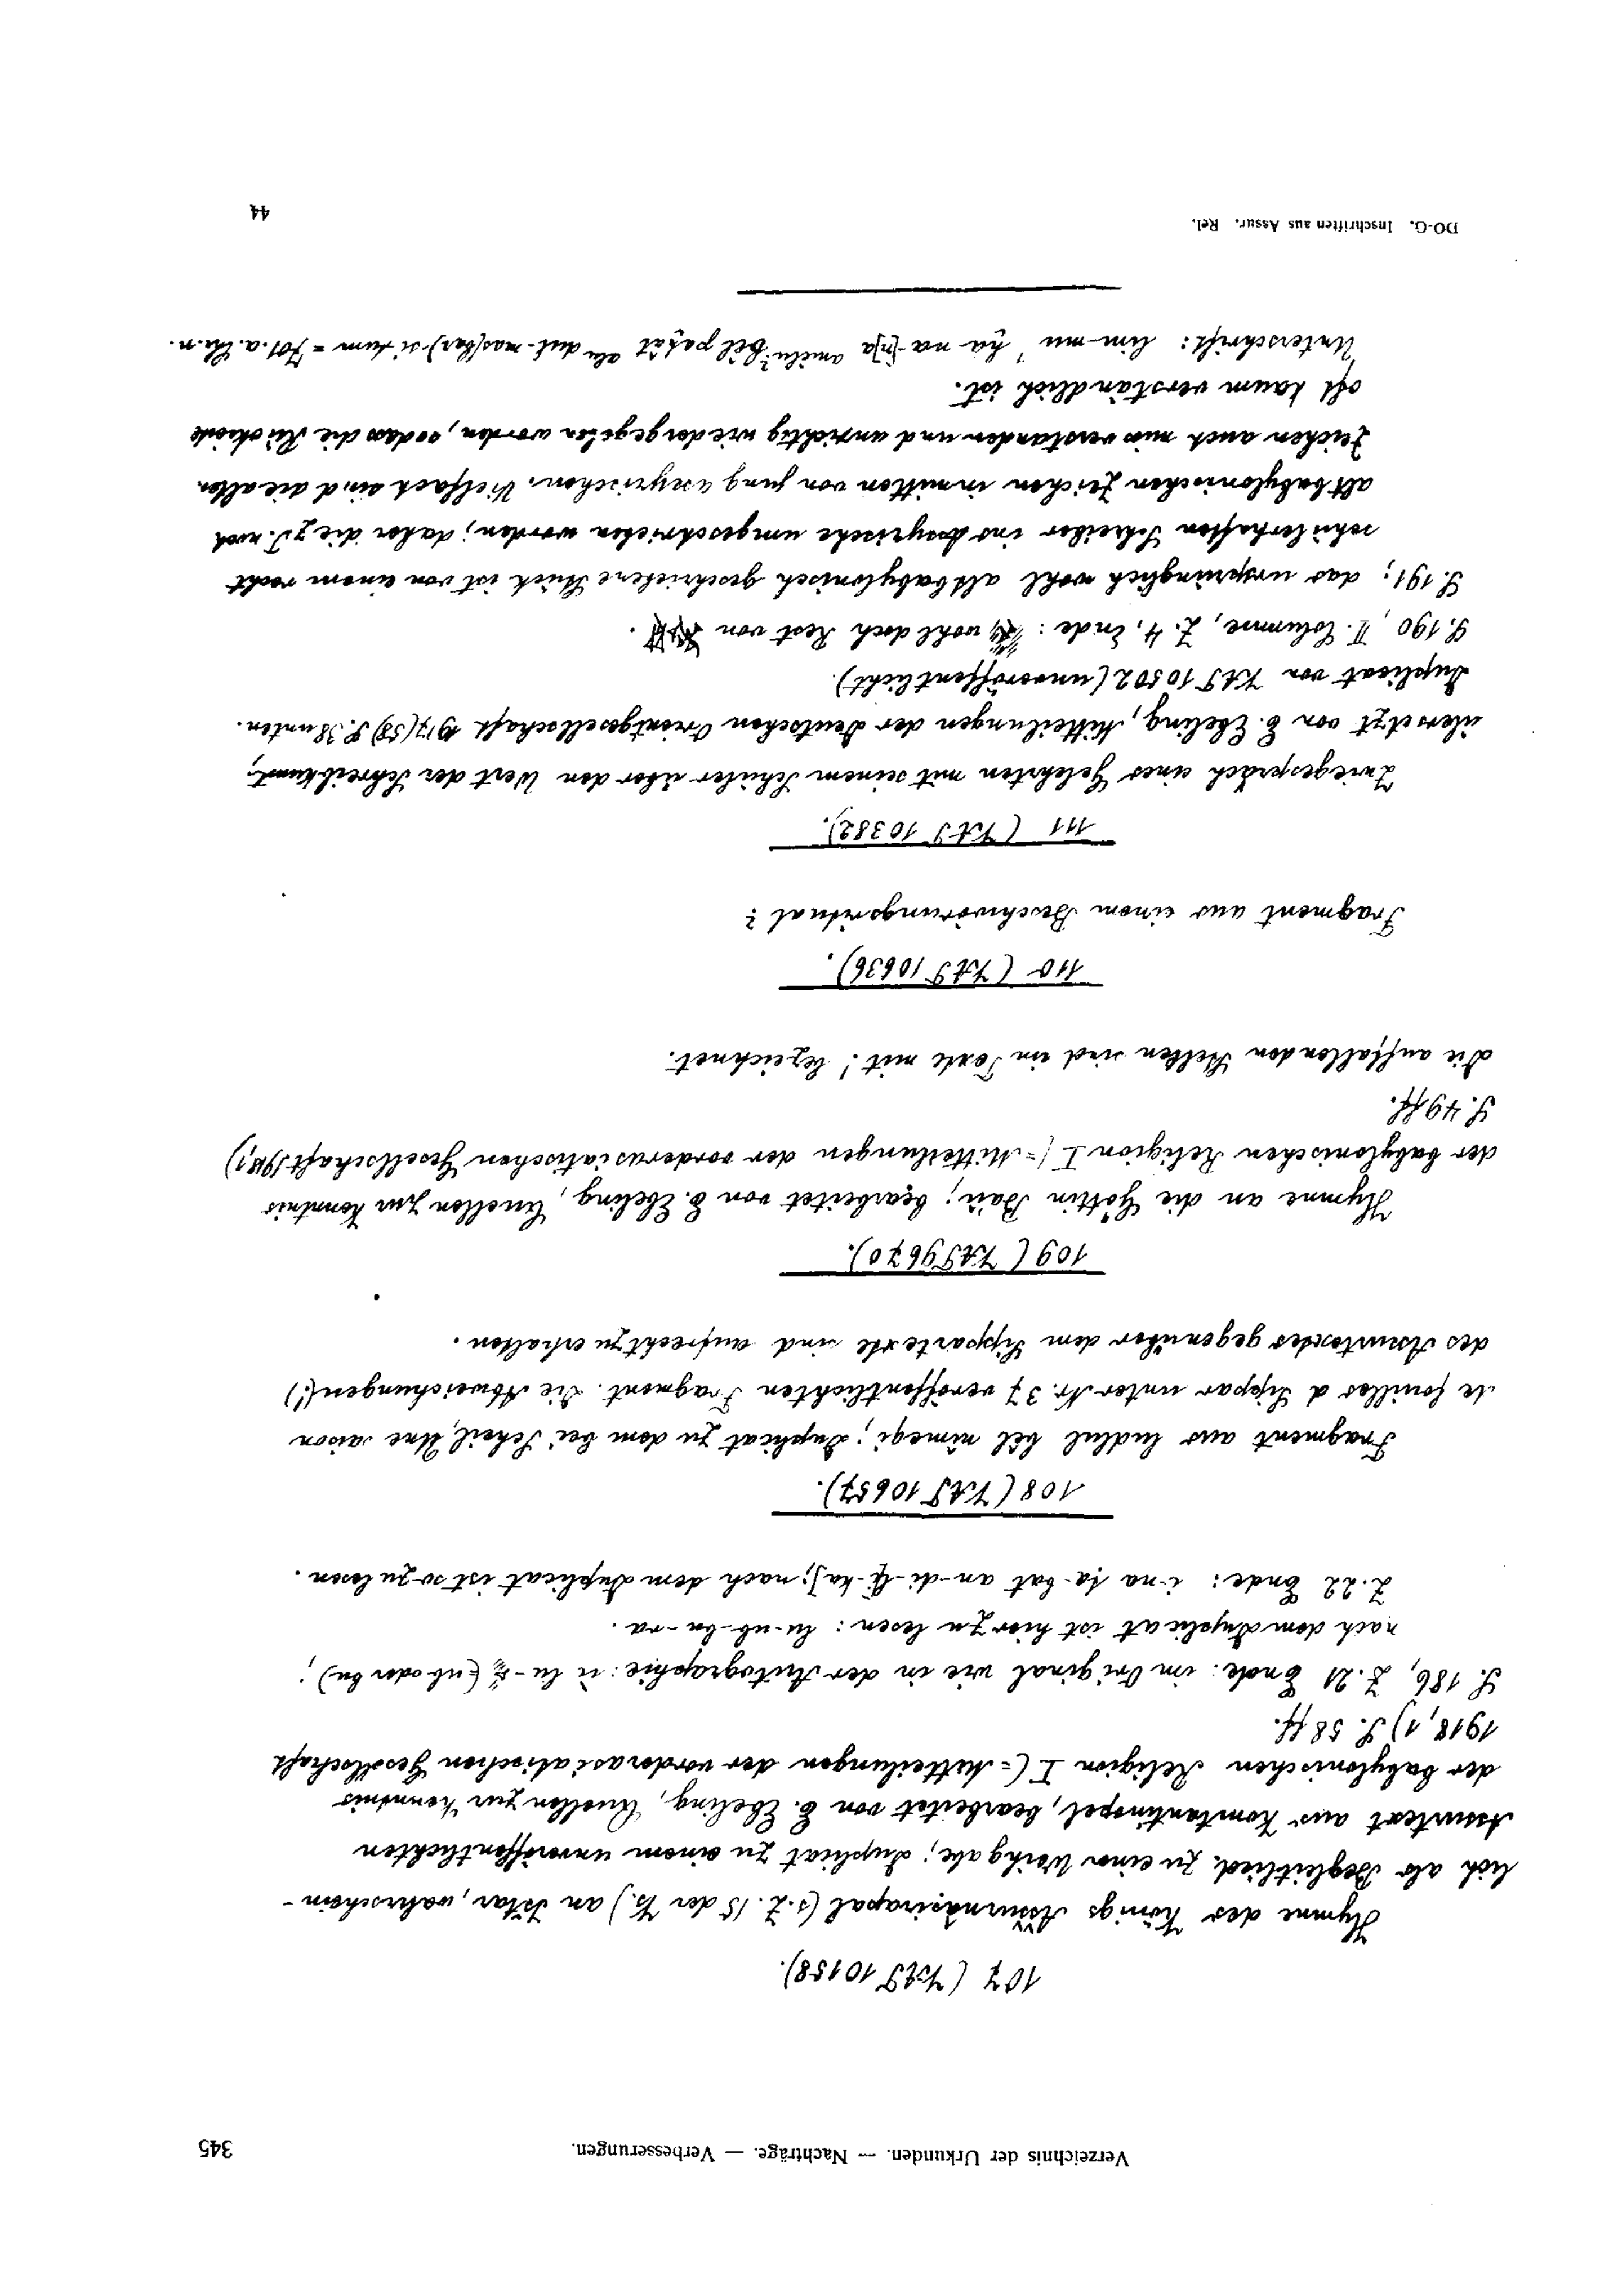 Verzeichnis der Urkunden. — Nachträge. — Verbesserungen. 345
107 (VAT 10158).
Hymne des Königs Aššurnâṣirapal (s. Z. 15 der Vs.) an Ištar, wahrschein-
lich als Begleitlied zu einer Weihgabe; Duplicat zu einem unveröffentlichten
Assurtext aus Konstantinopel, bearbeitet von E. Ebeling, Quellen zur Kenntnis
der babylonischen Religion I (= Mitteilungen der vorderasiatischen Gesellschaft
1918, 1) S. 58 ff.
S. 186, Z. 21 Ende: im Original wie in der Autographie: ù lu- (ub oder bu);
nach dem Duplicat ist hier zu lesen: lu-ub-bu-ra.
Z. 22 Ende: i-na ṭa-bat an-di-[ ]; nach dem Duplicat ist so zu lesen.
108 (VAT 10657).
Fragment aus ludlul bêl nimeqi; Duplicat zu dem bei Scheil, Une saison
de fouilles à Sippar unter Nr. 37 veröffentlichten Fragment. Die Abweichungen (!)
des Assurtextes gegenüber dem Sippartexte sind aufrecht zu erhalten.
109 (VAT 9670).
Hymne an die Göttin Bau; bearbeitet von E. Ebeling, Quellen zur Kenntnis
der babylonischen Religion I (= Mitteilungen der vorderasiatischen Gesellschaft 1918, 1)
S. 49 ff.
Die auffallenden Stellen sind im Texte mit ! bezeichnet.
110 (VAT 10636).
Fragment aus einem Beschwörungsritual?
111 (VAT 10382).
Zwiegespräch eines Gelehrten mit seinem Schüler über den Wert der Schreibkunst,
übersetzt von E. Ebeling, Mitteilungen der Deutschen Orientgesellschaft 1917 (58) S. 38 unten.
Duplicat von VAT 10502 (unveröffentlicht).
S. 190, II. Columne, Z. 4, Ende: wohl doch Rest von .
S. 191; das ursprünglich wohl altbabylonisch geschriebene Stück ist von einem recht
schülerhaften Schreiber ins Assyrische umgeschrieben worden; daher die z. T. noch
altbabylonischen Zeichen inmitten von jungassyrischen. Vielfach sind die alten
Zeichen auch missverstanden und unrichtig wiedergegeben worden, sodass die Rückseite
oft kaum verständlich ist.
Unterschrift: lim-mu ha-na-[n]a amêlu? bêl paḫât alu = 701. a. Chr. n.
DO-G. Inschriften aus Assur. Rel. 44